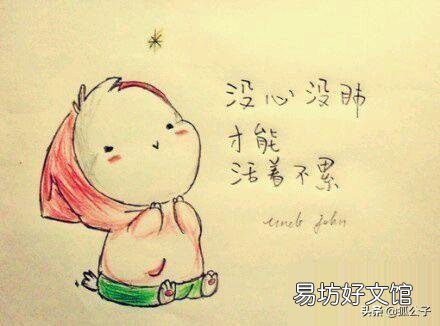 没心没肺
才能
活着不累
uncle John
易坊好文馆
头条@狐公子